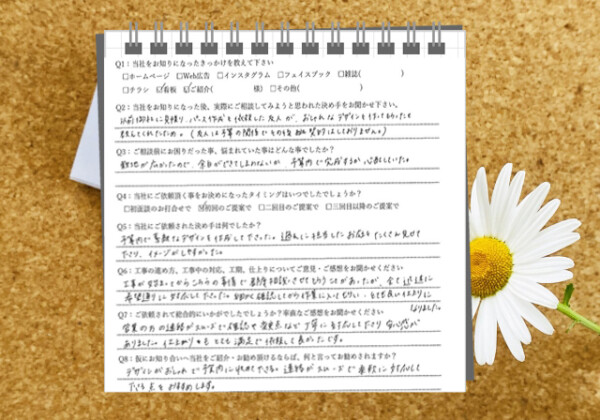 Q1：当社をお知りになったきっかけを教えて下さい
□ホームページ □Web広告 □インスタグラム □フェイスブック □雑誌( )
□チラシ ☑看板 ☑ご紹介( 様) □その他( )
Q2：当社をお知りになった後、実際にご相談してみようと思われた決め手をお聞かせ下さい。
以前御社に見積り、パース作成を依頼した友人が、おしゃれなデザインを
教えてくれたため。(友人は予算の関係でその後 契約はしておりません。)
Q3：ご相談前にお困りだった事、悩まれていた事はどんな事でしたか？
敷地が広かったので、余白ができてしまわないか、予算内で完成するか心配していた。
Q4：当社にご依頼頂く事をお決めになったタイミングはいつでしたでしょうか？
□初面談のお打合せで ☑初回のご提案で □二回目のご提案で □三回目以降のご提案で
Q5：当社にご依頼された決め手は何でしたか？
予算内で素敵なデザインを作成して下さった。過去に担当したお庭をたくさん見せて
下さり、イメージがしやすかった。
Q6：工事の進め方、工事中の対応、工期、仕上りについてご意見・ご感想をお聞かせください
工事が始まってからこちらの事情で連絡相談させてもらうことがあったが、全て迅速に
希望通りに対応して下さった。細かく確認してから作業に入ってもらい、とても良い仕上りに
なりました。
Q7：ご依頼されて総合的にいかがでしたでしょうか？率直なご感想をお聞かせください
営業の方の連絡がスムーズで確認や変更点など丁寧に対応して下さり安心感が
ありました。仕上がりもとても満足で依頼して良かったです。
Q8：仮にお知り合いへ当社をご紹介・お勧め頂けるならば、何と言ってお勧めされますか？
デザインがおしゃれで予算内に収めて下さる。連絡がスムーズで柔軟に対応して
下さる点をおすすめします。